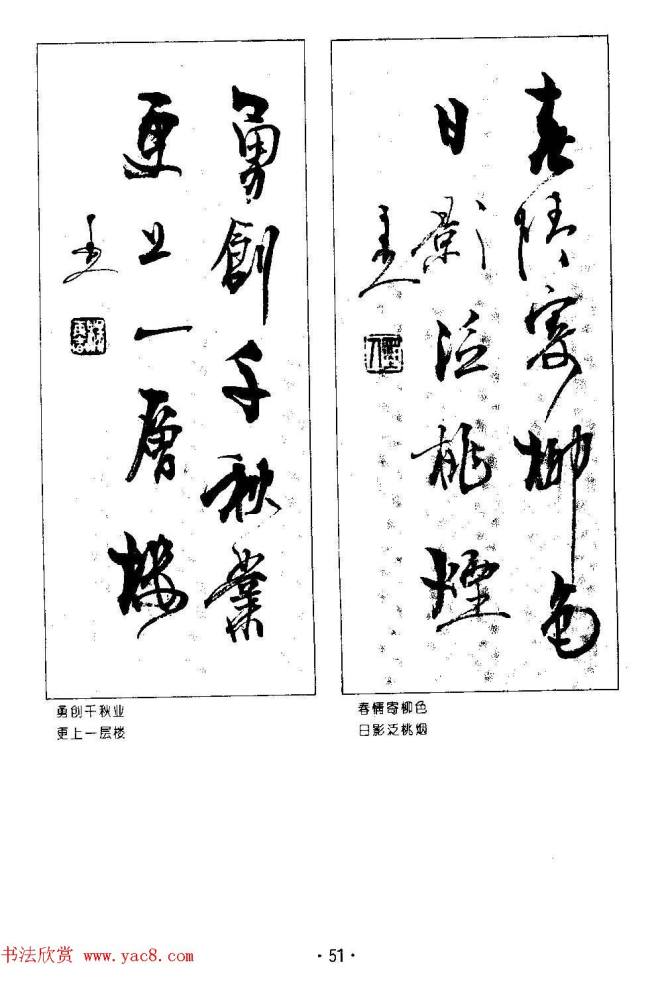 春情寄柳色
日影泛桃煙
勇創千秋業
更上一層樓
春情寄柳色
日影泛桃烟
勇创千秋业
更上一层楼
·51·
书法欣赏 www.yac8.com